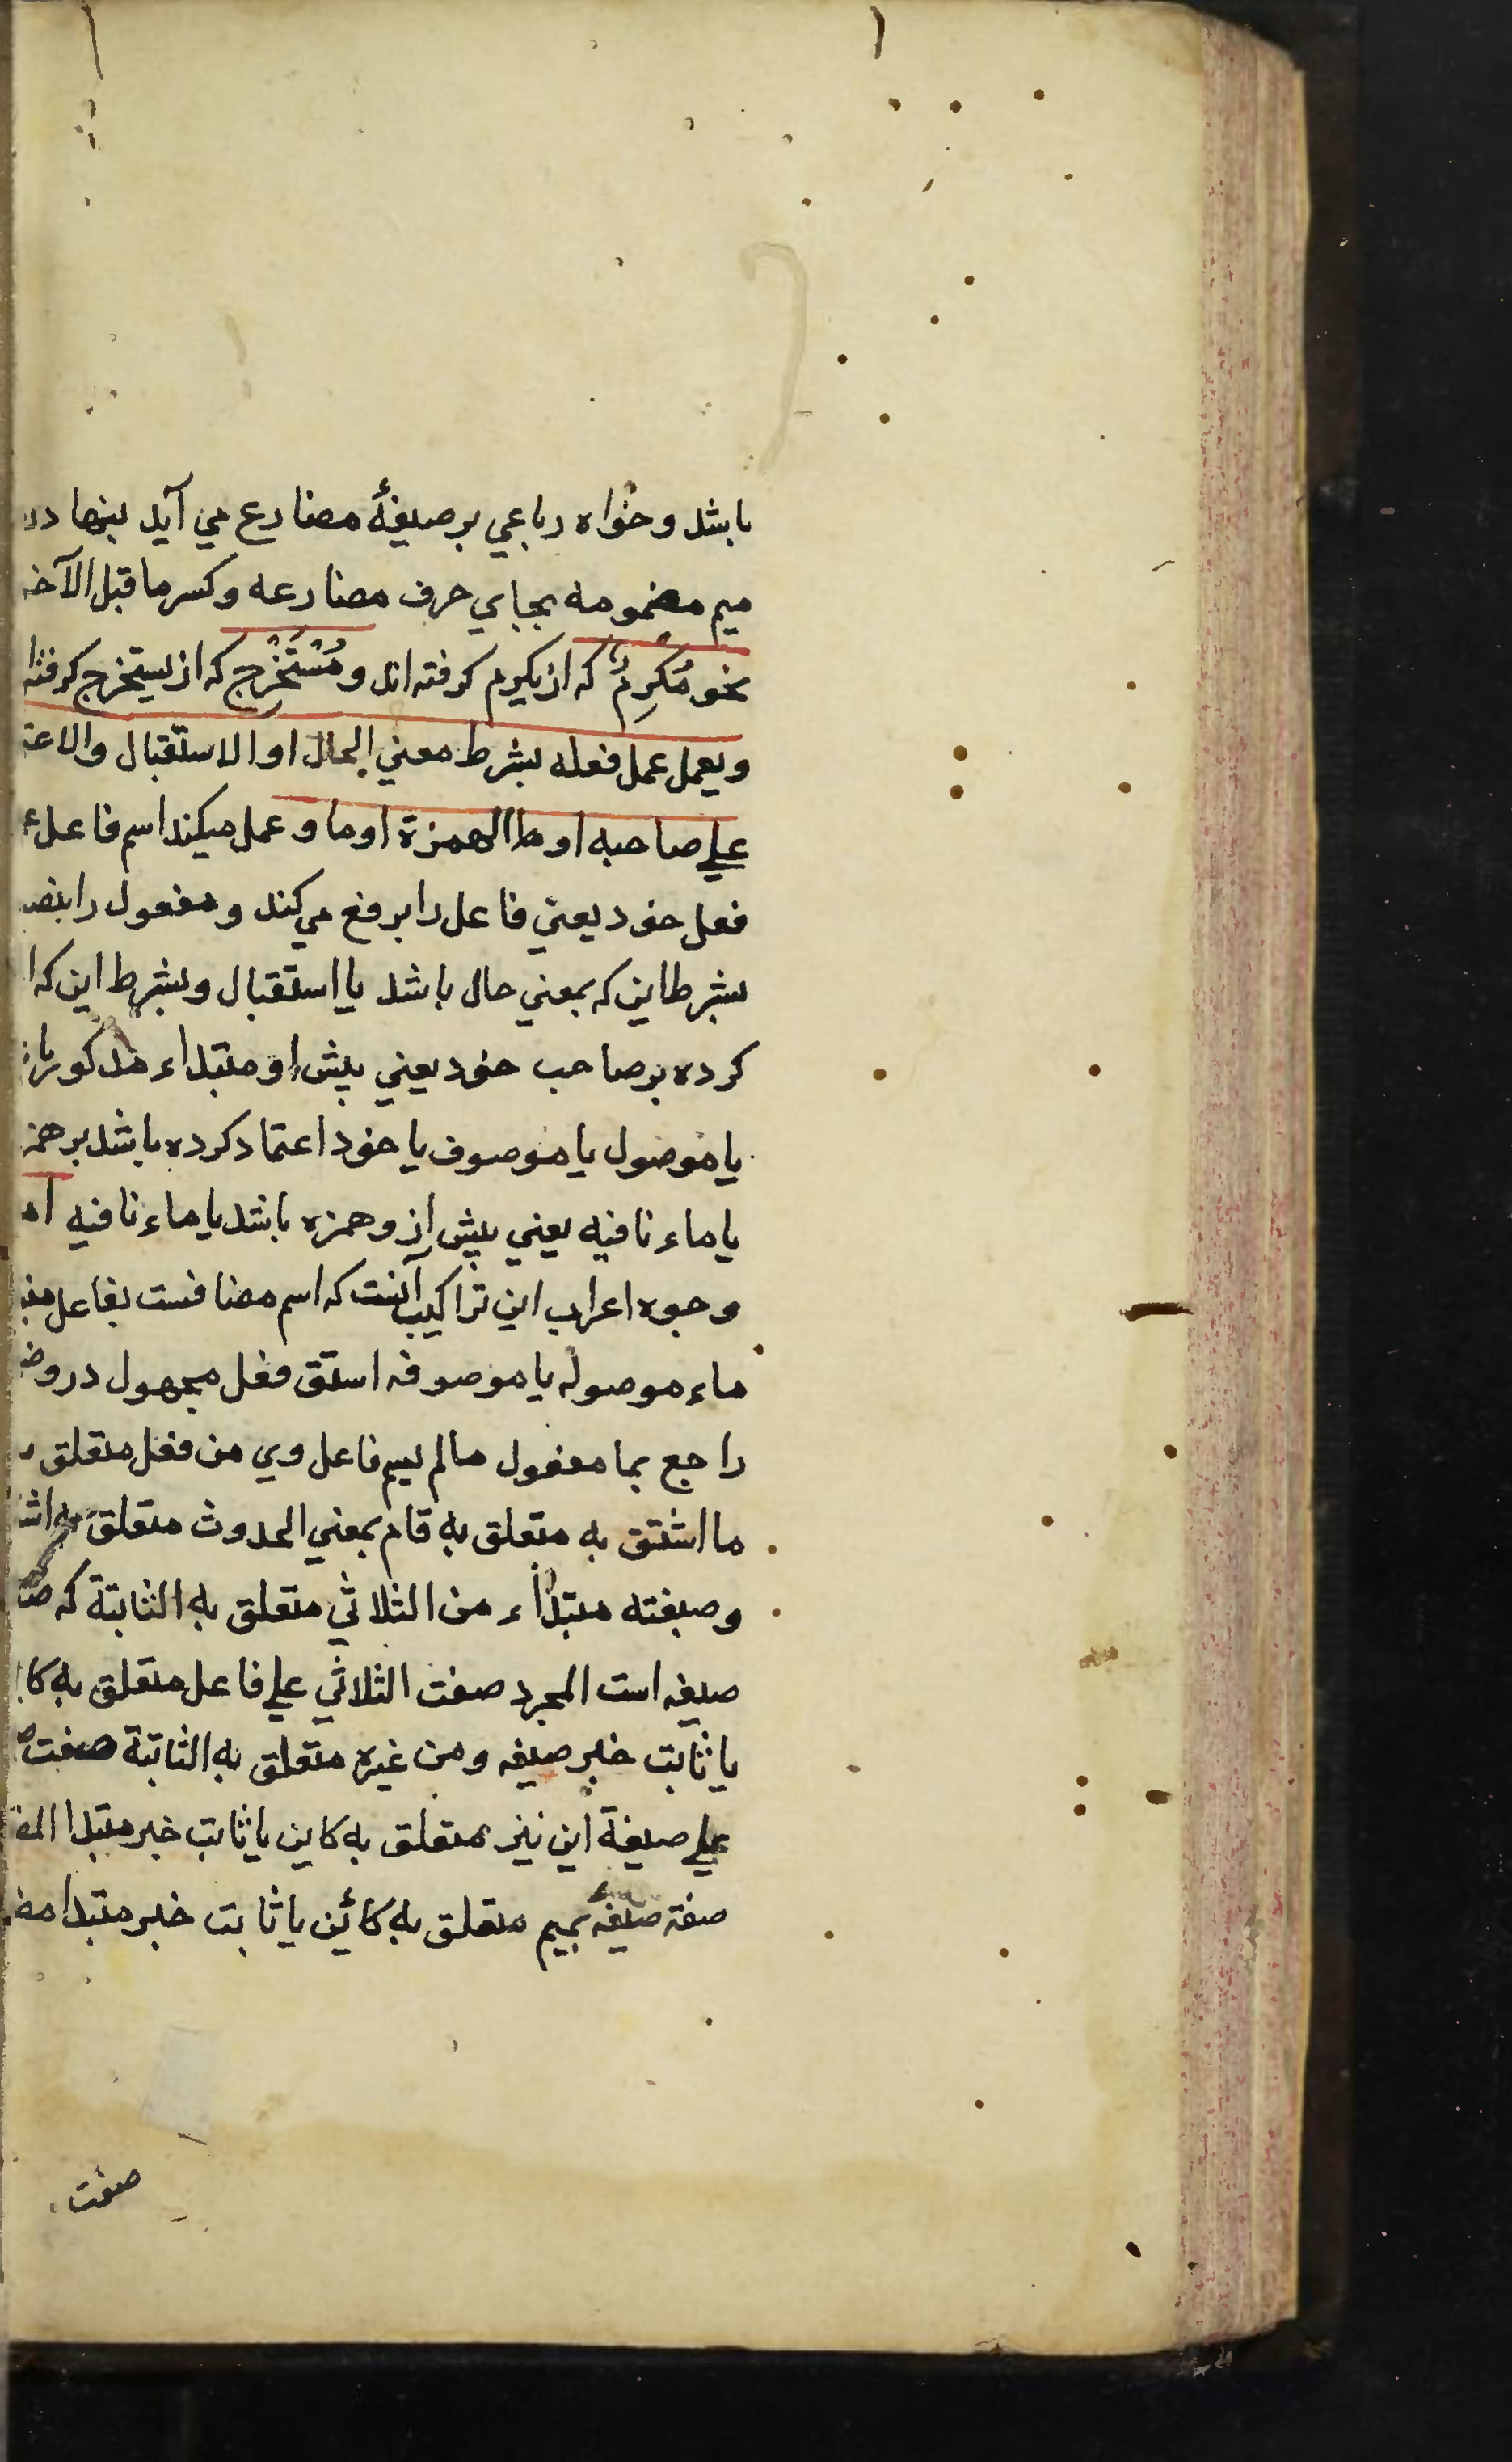 باشد و خواه رباعي بر صيغهٔ مضارع مي آيد بنها در
ميم مضمومه بجاي حرف مضارعه و كسر ما قبل الآخر
نحو مُكْرِمٌ كه از يكرم كرفته اند و مُسْتَخْرِج كه از يستخرج كرفته ا
ويعمل عمل فعله بشرط معني الحال او الاستقبال والاعتـ
علي صاحبه او ما الهمزة او ما و عمل ميكند اسم فاعل
فعل خود يعني فاعل را برفع مي كند و مفعول را بنصـ
بشرط اين كه بمعني حال باشد يا استقبال و بشرط اين كه ا
كرده بر صاحب خود يعني پيش او مبتداء مذكور
يا موصول يا موصوف يا خود اعتماد كرده باشد بر همز
يا ماء نافيه يعني پيش از و همزه باشد يا ماء نافيه
وجوه اعراب اين تراكيب آنست كه اسم مضافست بفاعل
ماء موصوله يا موصوفه استق فعل مجهول درو
راجع بما مفعول مالم يسم فاعل وي من فعل متعلق
ما اشتق به متعلق به قام بمعني الحدوث متعلق به اشـ
وصيغته مبتداء من الثلاثي متعلق به الثابتة كه
صيغه است المجرد صفت الثلاثي علي فاعل متعلق به كا
يا ثابت خبر صيغه ومن غيره متعلق به الثابتة صفت
علي صيغة اين نيز متعلق به كاين يا ثابت خبر مبتدا
صفة صيغهٔ بميم متعلق به كائن يا ثابت خبر مبتدا
صفت